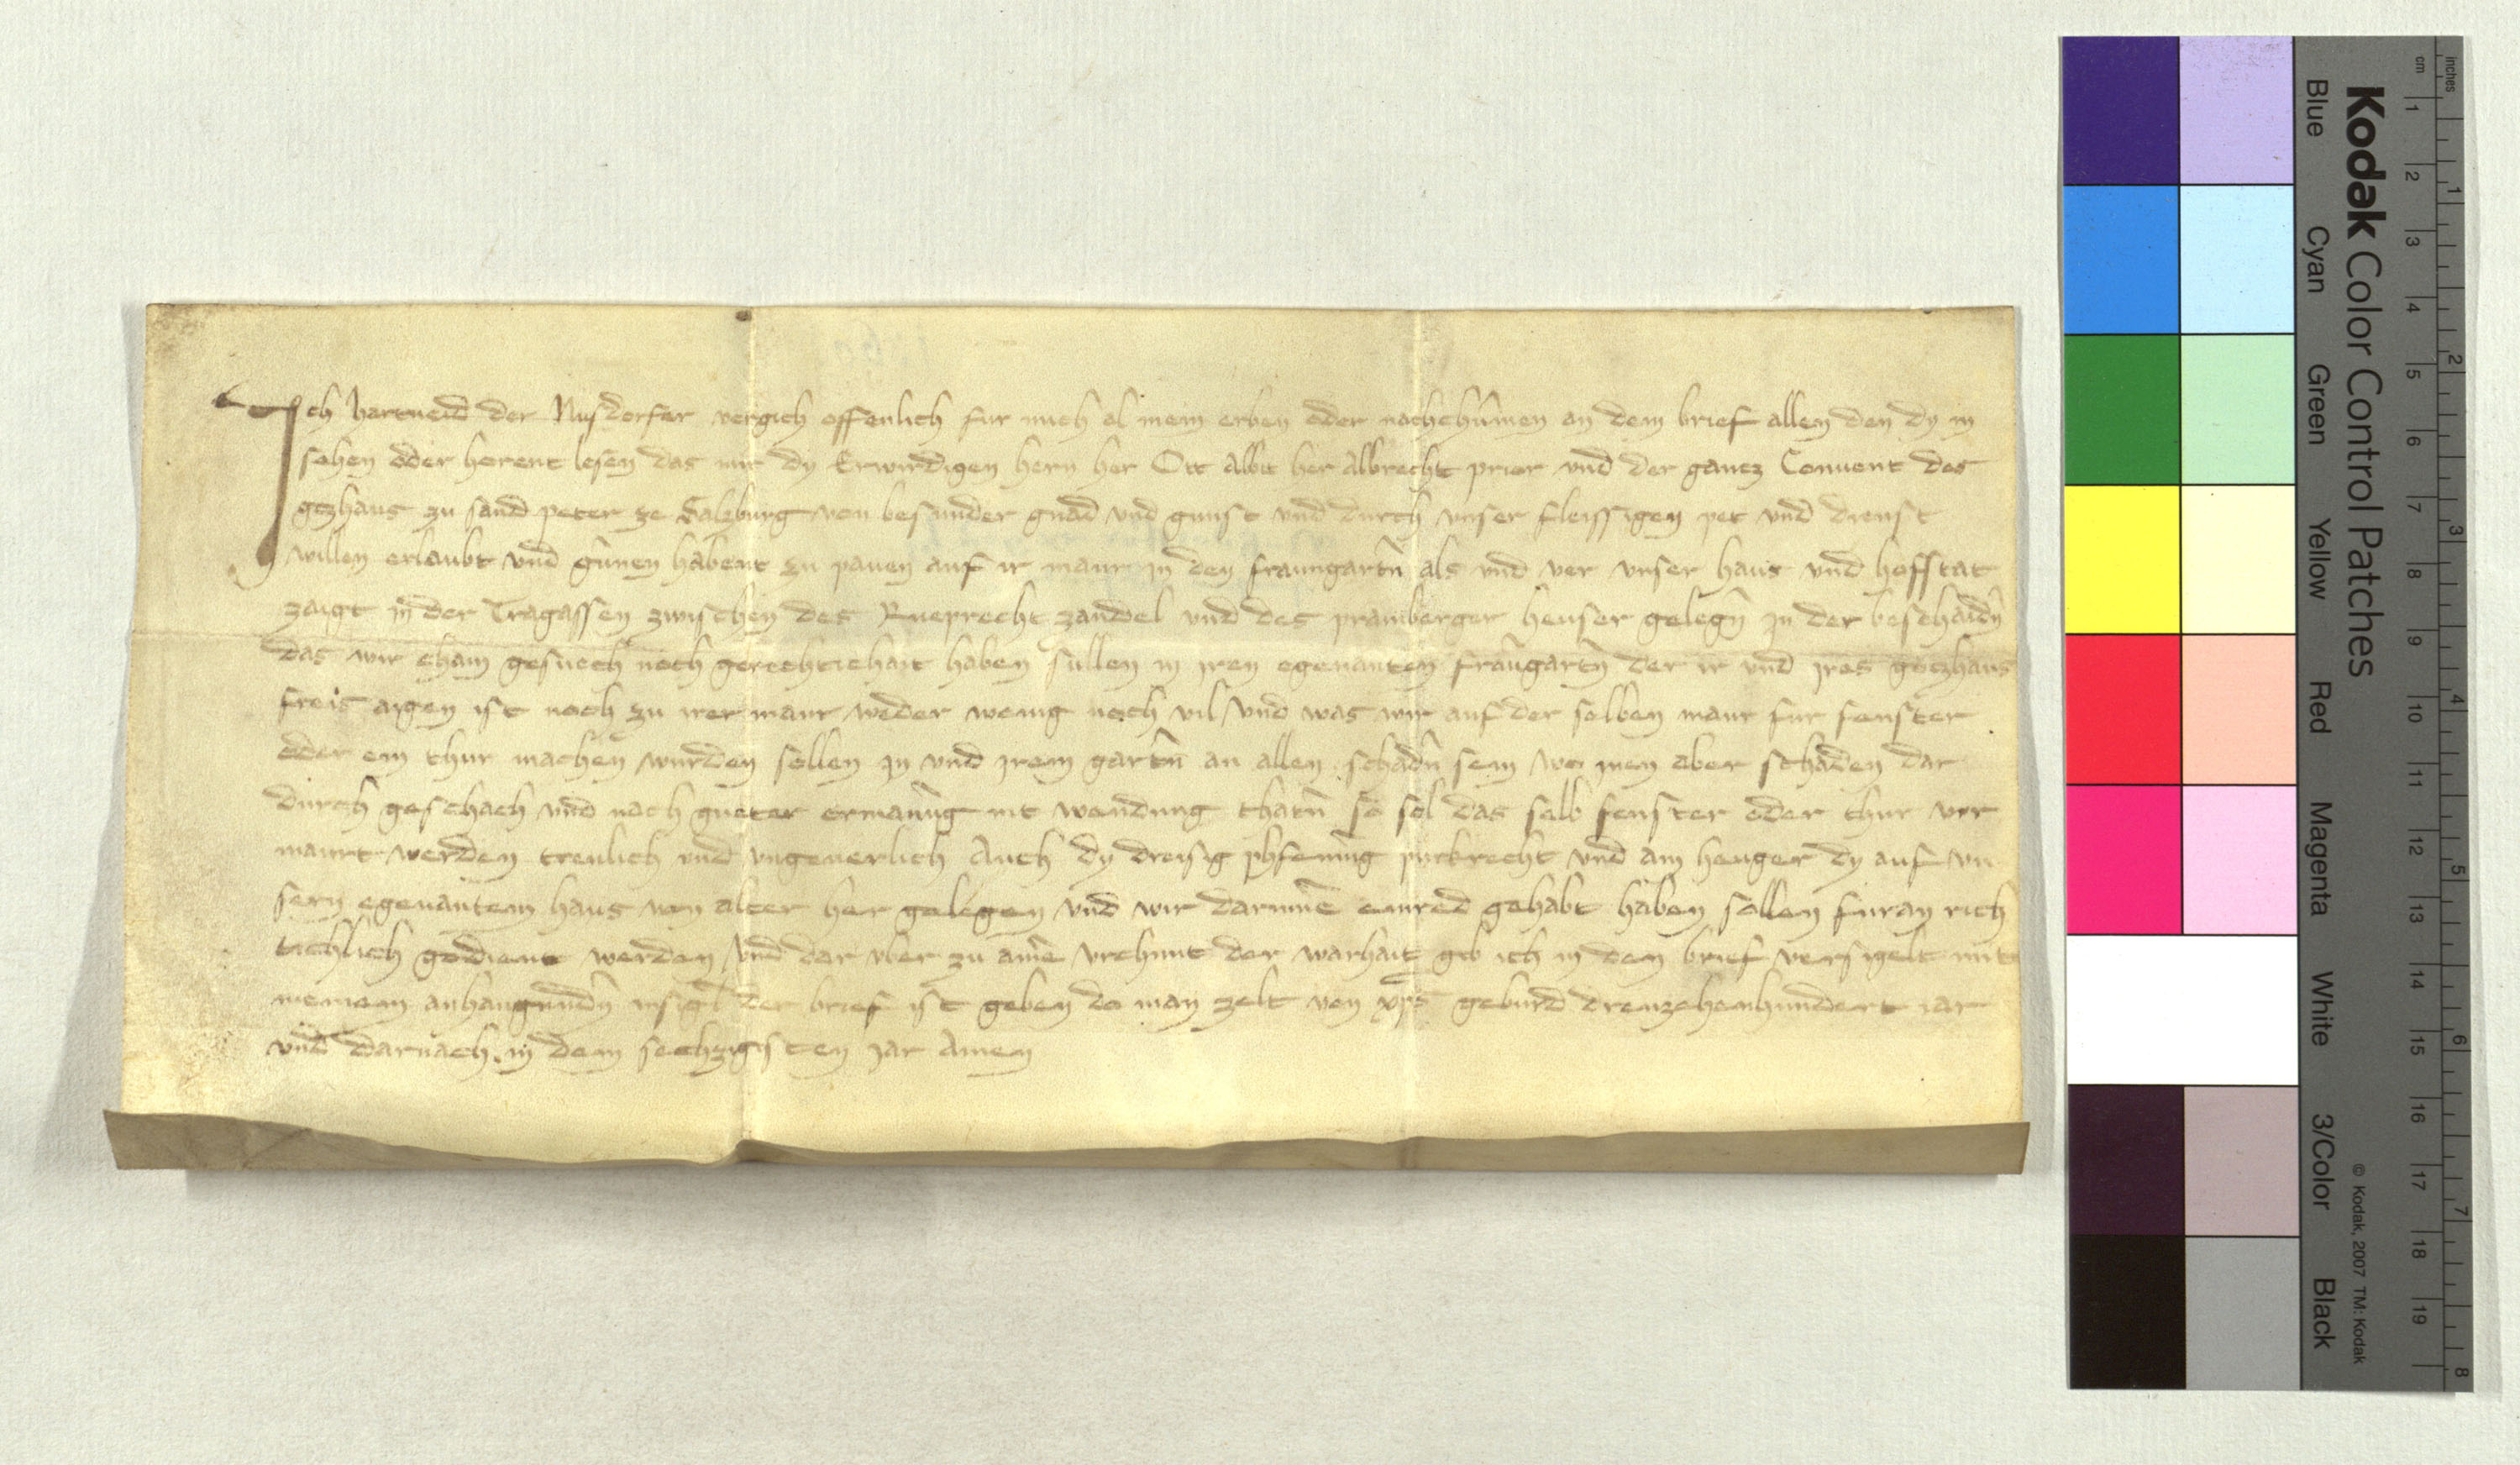 Ich hartneid der Nusdorfer vergich offenlich fur mich al mein erben oder nachchumen an dem brief allen den dy in
sehen oder horent lesen das mir dy Erwirdigen hern her Ott Abbt her Albrecht prior vnd der gancz Conuent des
gozhaus zu sand peter ze Salzburg von besunder gnad vnd gunst vnd durch vnser fleissigen pet vnd dienst
willen erlaubt vnd gunen habent zu pauen auf ir maur in den fraungartn als vnd ver vnser haus vnd hofstat
zaigt in der Tragassen zwischen des Rueprecht zandel vnd des pramberger heuser gelegn in der beschaidn
das wir chain gesuech noch gerechtichait haben sullen in iren egenanten fraungartn der ir vnd ires gotzhaus
freis aigen ist noch zu irer maur weder wenig noch vil vnd was wir auf der selben maur fur fenster
oder ein thur machen wurden sollen in vnd irem gartn an allen schadn sein wo inen aber schaden dar
durch geschach vnd nach gueter ermanung nit wendung thatn so sol das selb fenster oder thur ver
maurt werden treulich vnd vngeuerlich Auch dy dreisig phfening purkrecht vnd am henger dy auf vn
sern egenantem haus von alter her gelegen vnd wir darinne einred gehabt haben sollen furan rich
tichlich gedient werden vnd dar vber zu aine vrchunt der warhait gib ich in den brief versigelt mit
meinem anhangundn insigl der brief ist geben do man zelt von xps geburd dreuzehenhundert iar
vnd darnach in dem sechzigisten jar Amen
Kodak Color Control Patches
Blue Cyan Green Yellow Red Magenta White 3/Color Black
© Kodak, 2007 TM: Kodak
cm 1 2 3 4 5 6 7 8 9 10 11 12 13 14 15 16 17 18 19
inches 1 2 3 4 5 6 7 8